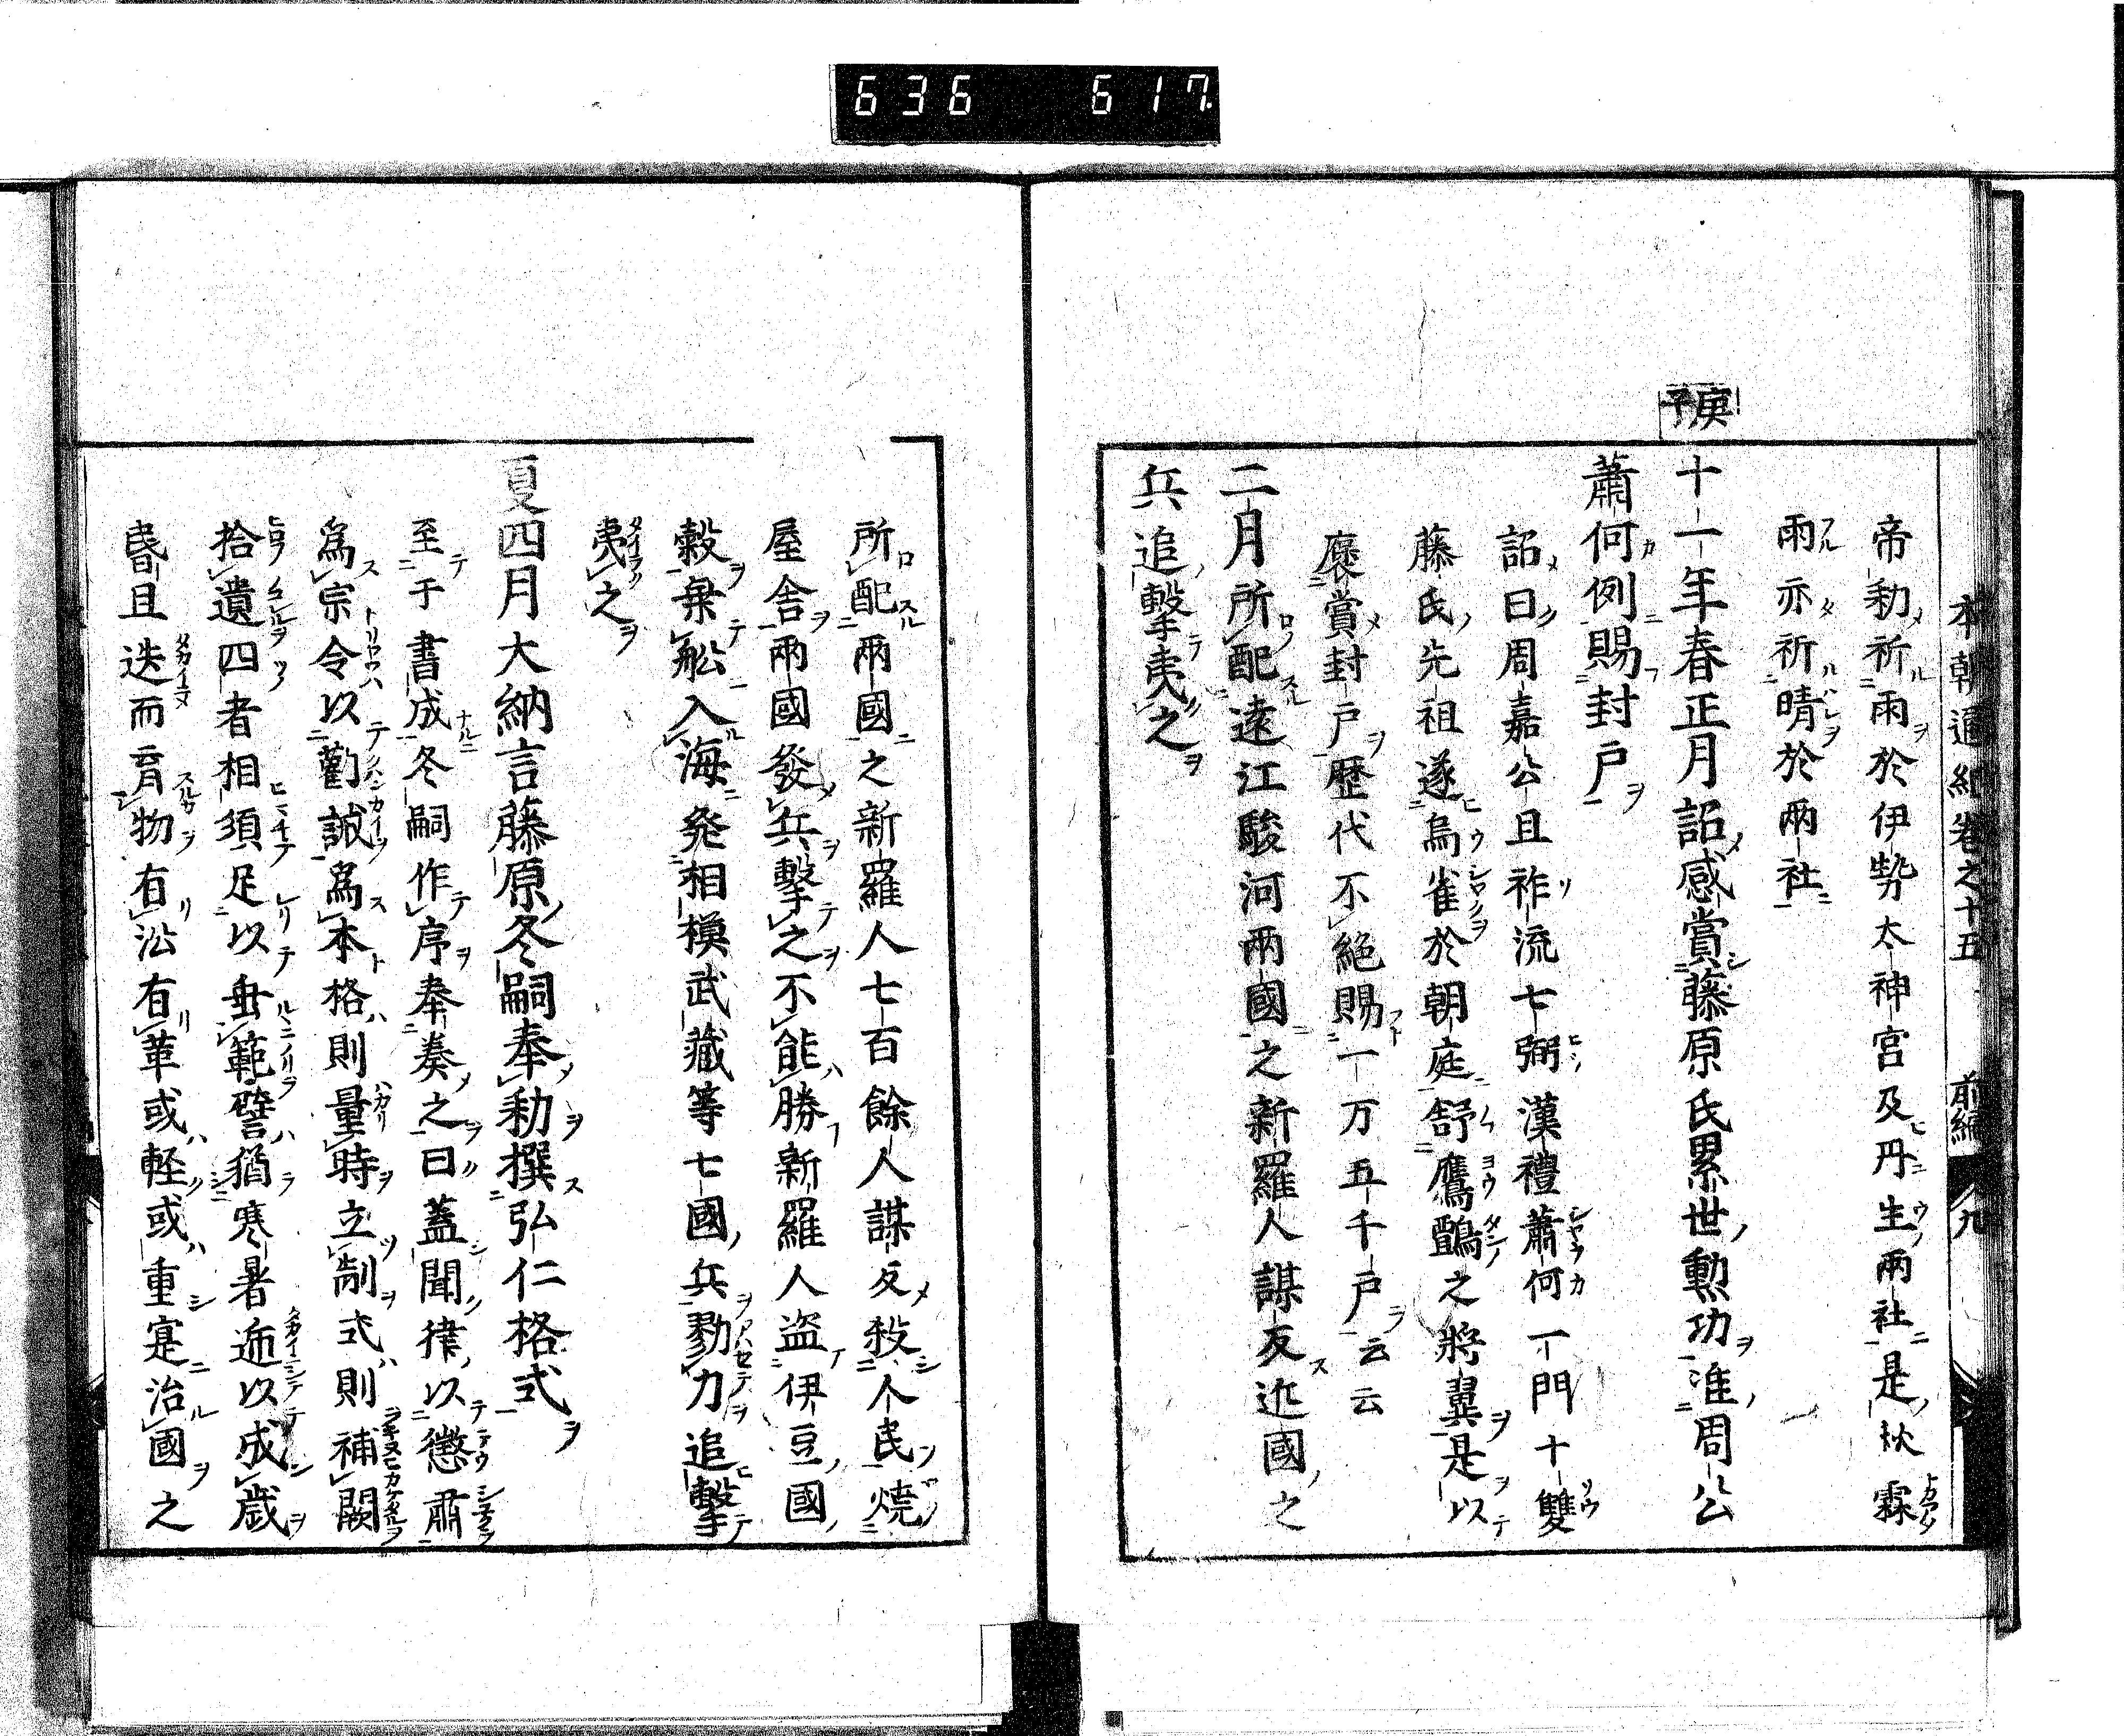 636 617
本朝通紀巻之十五 前編 九
帝勅祈雨於伊勢太神宮及丹生兩社是秋霖
雨亦祈晴於兩社
庚子
十一年春正月詔感賞藤原氏累世勲功准周公
蕭何例賜封戸
詔曰周嘉公且祚流七弼漢禮蕭何一門十雙
藤氏先祖逐鳥雀於朝庭舒鷹鸇之將翼是以
褒賞封戸歴代不絶賜一万五千戸云云
二月所配遠江駿河兩國之新羅人謀反近國之
兵追撃夷之
所配兩國之新羅人七百餘人謀反殺人民燒
屋舎兩國發兵撃之不能勝新羅人盗伊豆國
穀乗舩入海発相模武藏等七國兵勠力追撃
夷之
夏四月大納言藤原冬嗣奉勅撰弘仁格式
至于書成冬嗣作序奉奏之曰蓋聞律以懲肅
爲宗令以勸誡爲本格則量時立制式則補闕
拾遺四者相須足以垂範譬猶寒暑逓以成歳
昏且迭而育物有沿有革或軽或重寔治國之